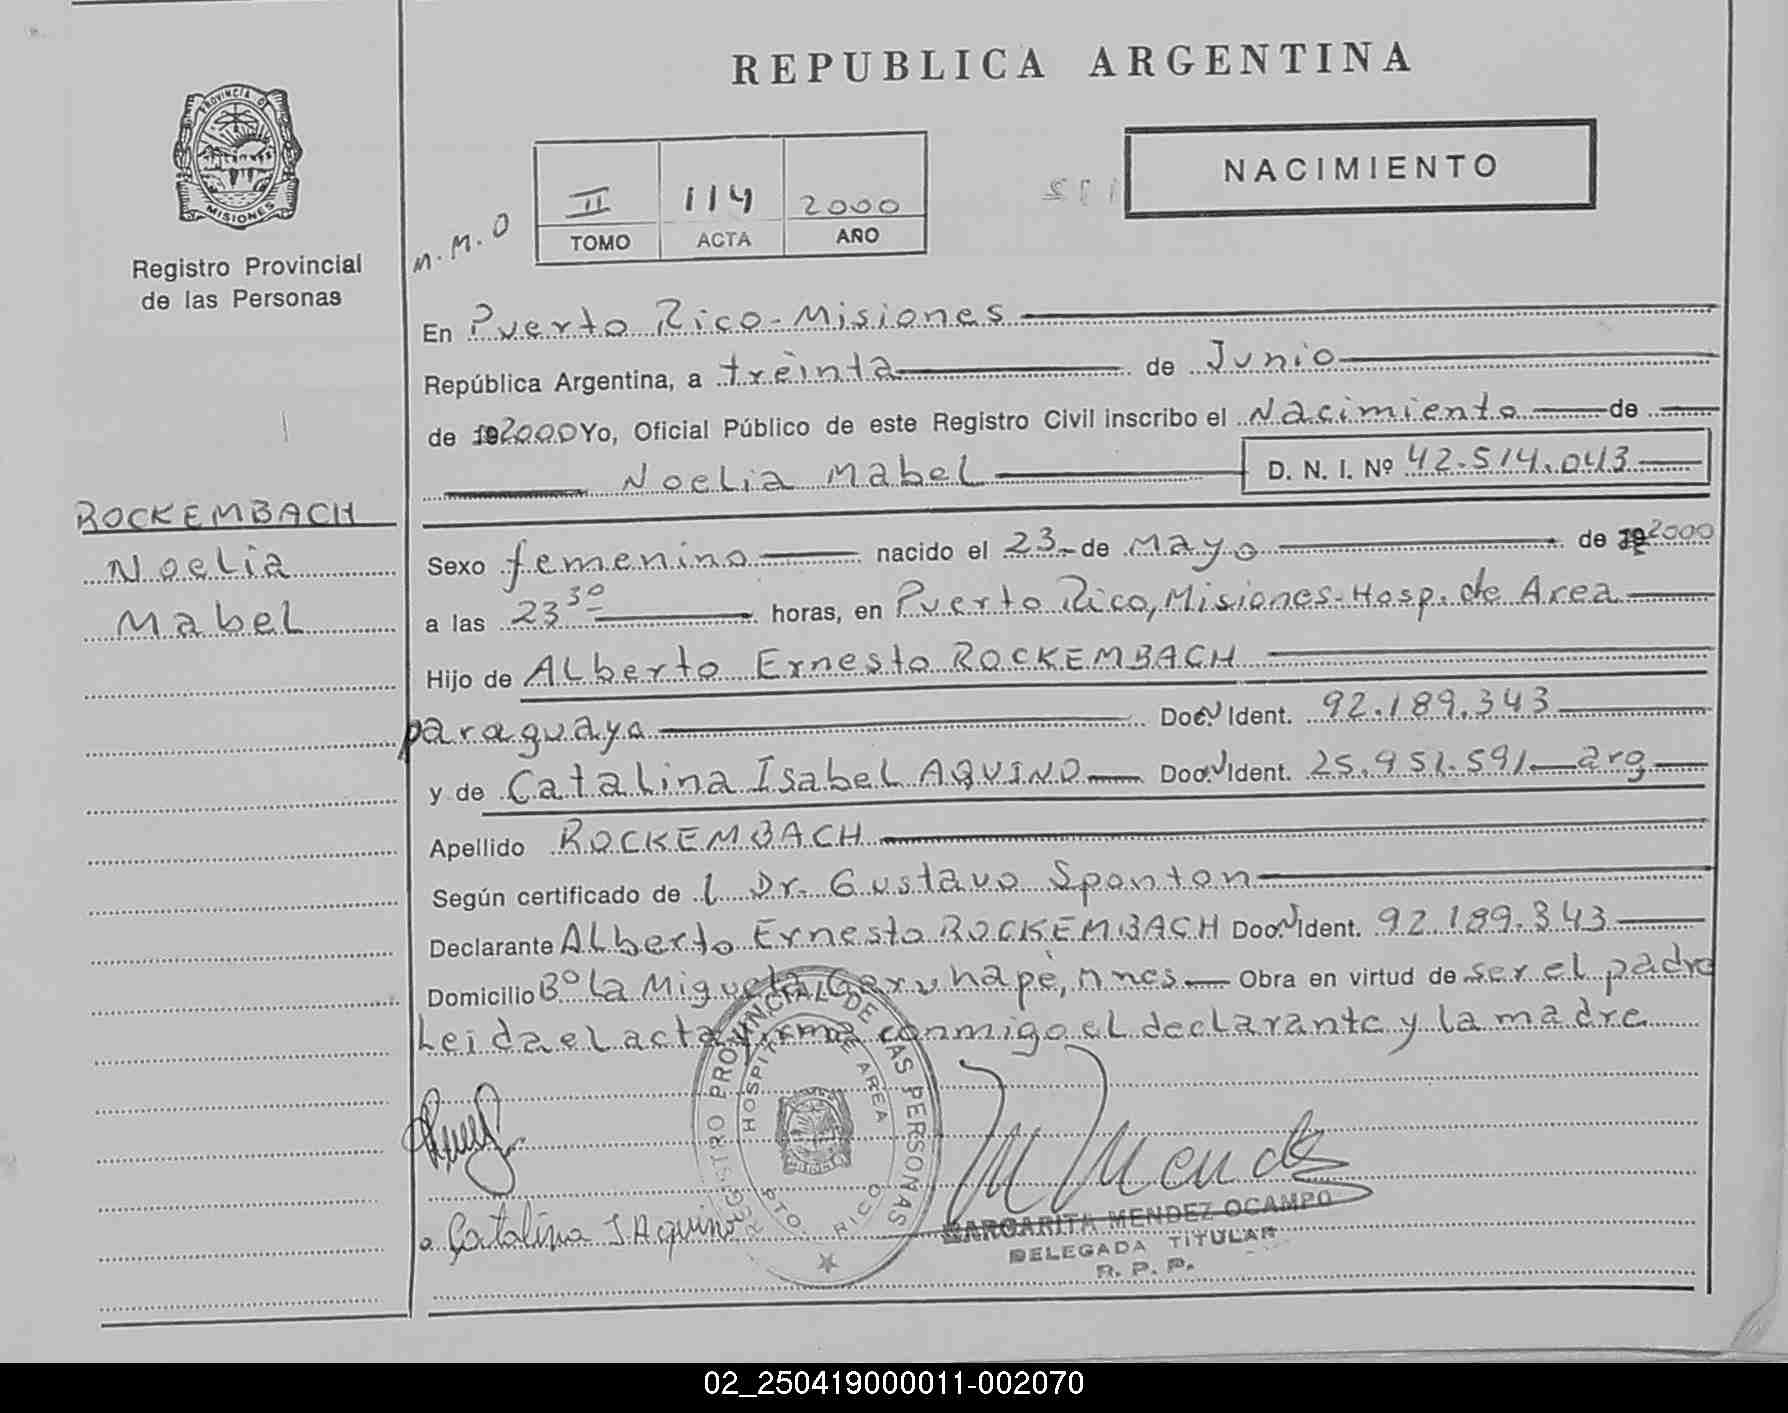 REPUBLICA ARGENTINA
PROVINCIA D
MISIONES
Registro Provincial
de las Personas
M.M.O
II 114 2000
TOMO ACTA AÑO
NACIMIENTO
En Puerto Rico-Misiones
República Argentina, a treinta de Junio
de 192000 Yo, Oficial Público de este Registro Civil inscribo el Nacimiento de
Noelia Mabel D. N. I. Nº 42.514.043
ROCKEMBACH
Noelia
Mabel
Sexo femenino nacido el 23 de Mayo de 192000
a las 23 30 horas, en Puerto Rico, Misiones-Hosp. de Area
Hijo de Alberto Ernesto ROCKEMBACH
paraguayo Doc. Ident. 92.189.343
y de Catalina Isabel AQUINO Doc. Ident. 25.951.591 arg
Apellido ROCKEMBACH
Según certificado de l Dr. Gustavo Sponton
Declarante Alberto Ernesto ROCKEMBACH Doc. Ident. 92.189.343
Domicilio Bº La Miguela Garuhapé, Mnes Obra en virtud de ser el padre
Leida el acta firma conmigo el declarante y la madre
REGISTRO PROVINCIAL DE LAS PERSONAS
HOSPITAL DE AREA
PTO. RICO
M Mendez
Catalina I Aquino
MARGARITA MENDEZ OCAMPO
DELEGADA TITULAR
R. P. P.
02_250419000011-002070